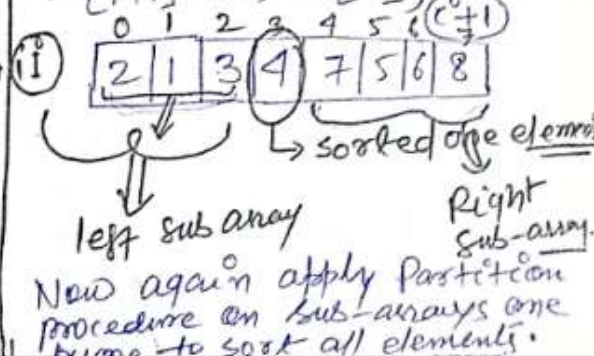 0 1 2 3 4 5 6 (i+1)
ii 2 1 3 4 7 5 6 8
sorted one element
left sub array
Right
sub-array.
Now again apply Partition
procedure on sub-arrays one
to sort all elements.